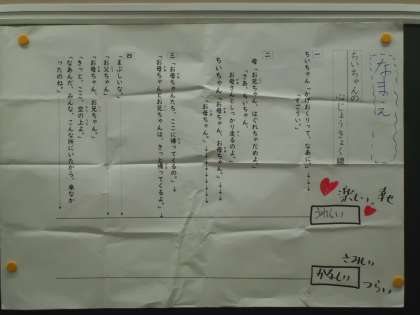 なまえ
ちいちゃんの
一
ちいちゃん「かげおくりって、なあに。」
「すごうい。」
二
母「お兄ちゃん、はぐれちゃだめよ。」
お母さんとしっかり走るのよ。」
「さあ、ちいちゃん、
ちいちゃん「お母ちゃん、お母ちゃん。」
「お母ちゃん。」
三「お母ちゃんたち、ここに帰ってくるの。」
「お母ちゃんとお兄ちゃんは、きっと帰ってくるよ。」
四
「まぶしいな。」
「お父ちゃん。」
「お母ちゃん、お兄ちゃん。」
「きっと、ここ、空の上よ。」
「なあんだ。みんな、こんな所にいたから、来なかったのね。」
楽しい
幸せ
うれしい
さみしい
かなしい
つらい